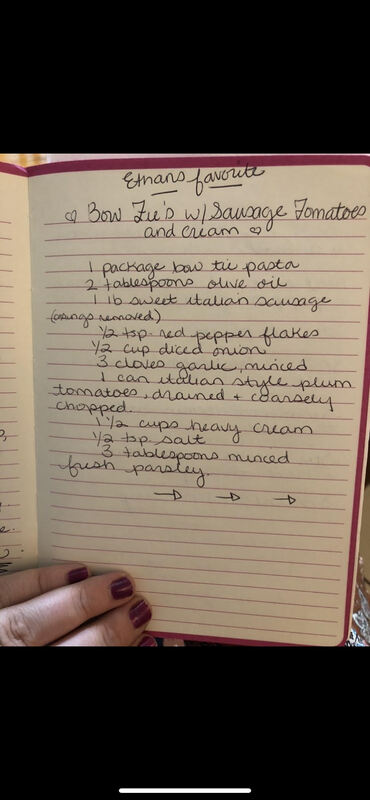 Ethans favorite
♡ Bow Tie's w/ Sausage Tomatoes
and cream ♡
1 package bow tie pasta
2 tablespoons olive oil
1 lb sweet italian sausage
(casings removed)
1/2 tsp. red pepper flakes
1/2 cup diced onion
3 cloves garlic, minced
1 can italian style plum
tomatoes, drained + coarsely
chopped.
1 1/2 cups heavy cream
1/2 tsp salt
3 tablespoons minced
fresh parsley.
→ → →